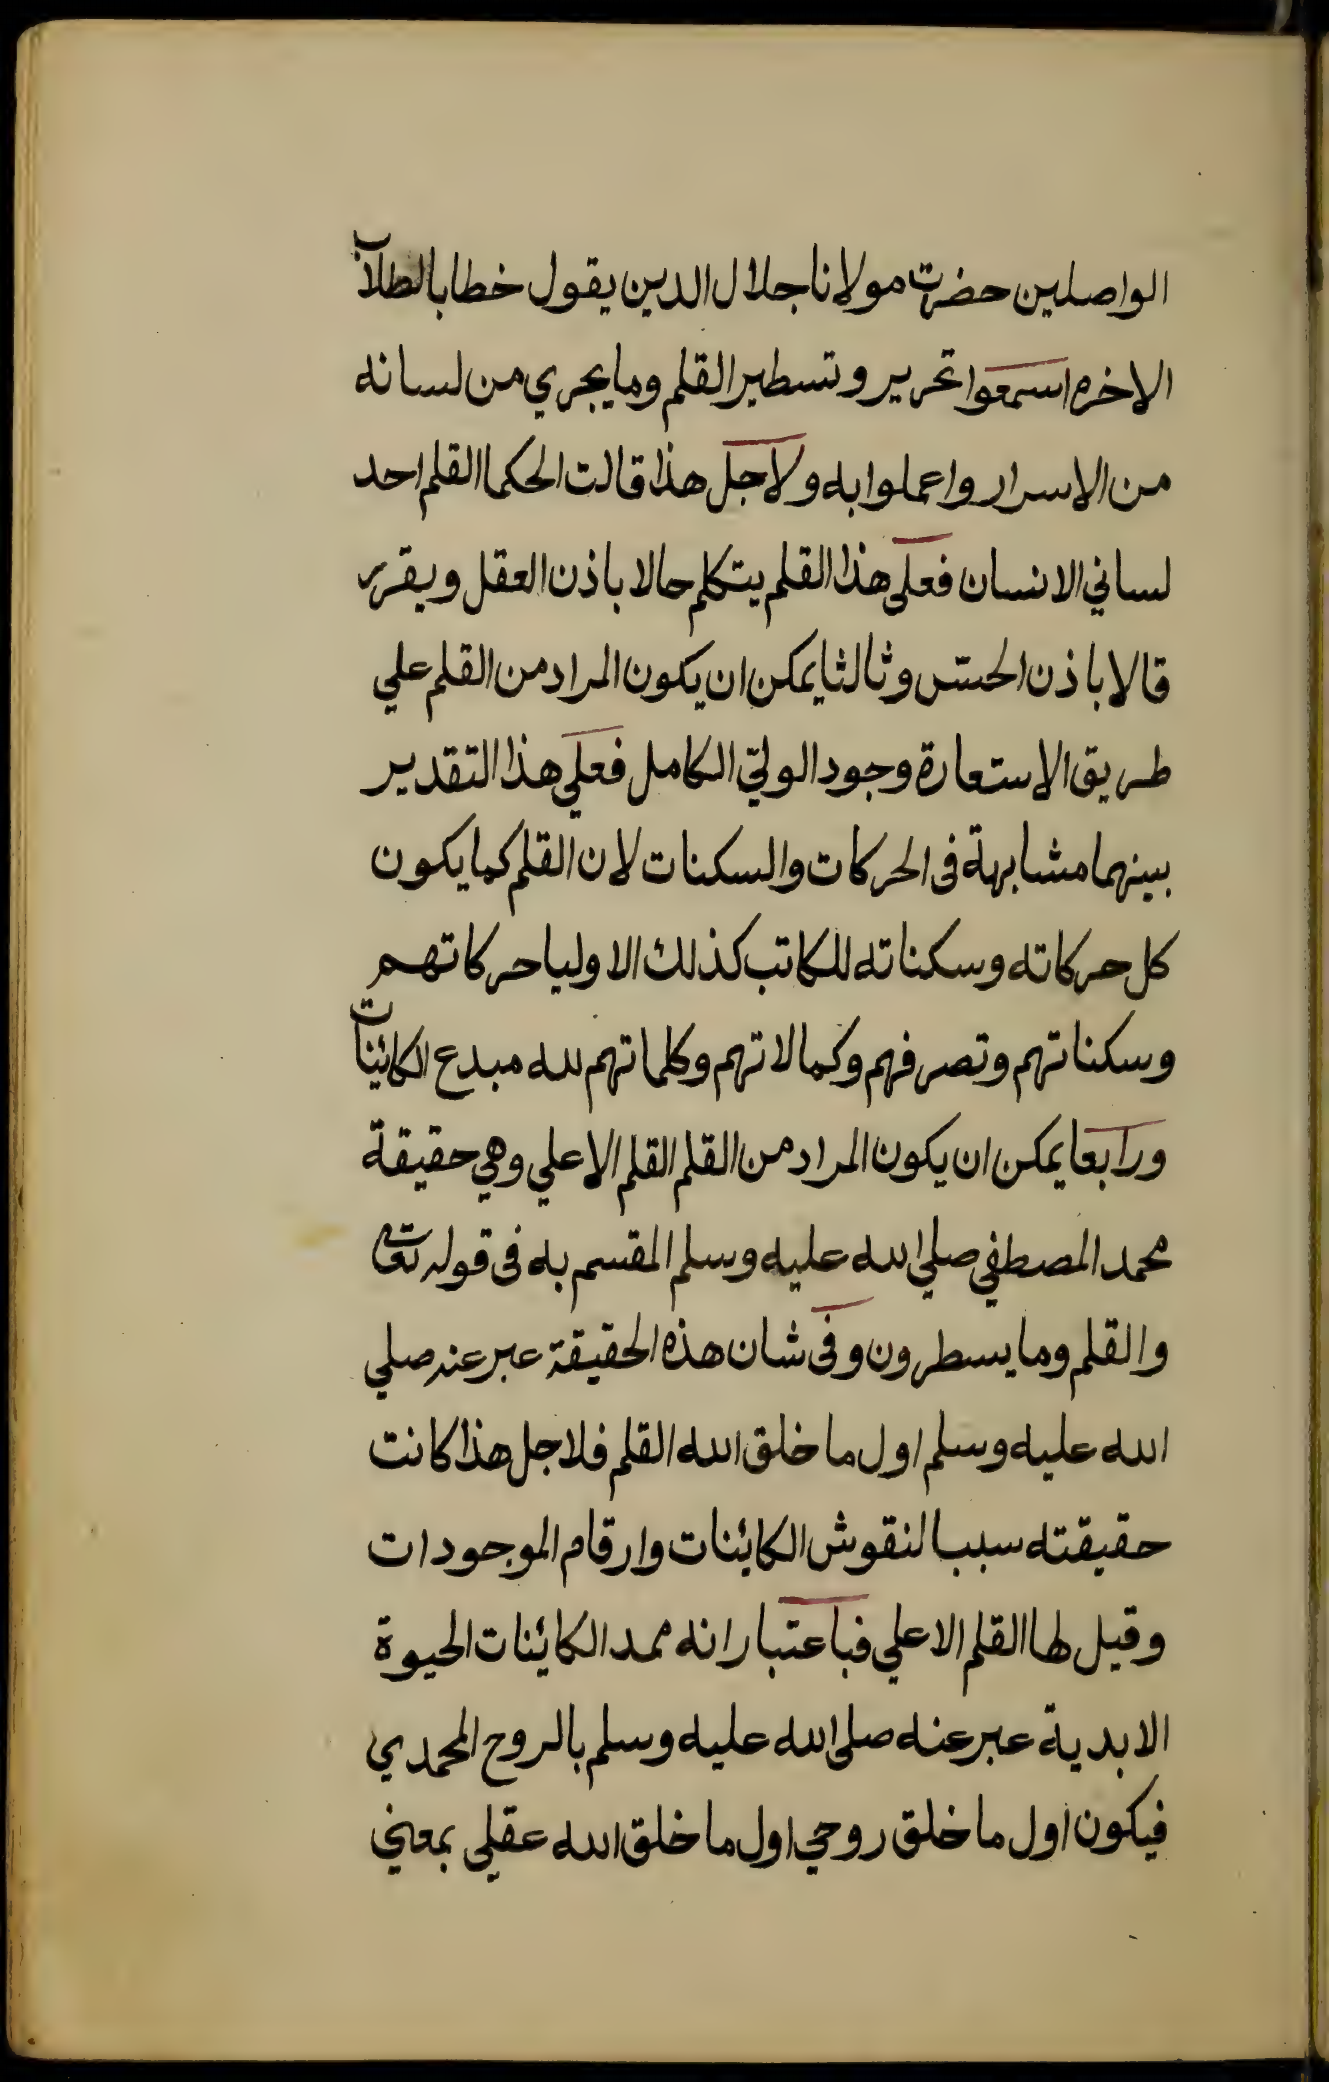 الواصلين حضرت مولانا جلال الدين يقول خطابا لطلاب
الاخره اسمعوا تحرير وتسطير القلم وما يجري من لسانه
من الاسرار واعملوا به ولاجل هذا قالت الحكما القلم احد
لساني الانسان فعلى هذا القلم يتكلم حالا باذن العقل ويقرر
قالا باذن الحسّ وثالثا يمكن ان يكون المراد من القلم علي
طريق الاستعارة وجود الوليّ الكامل فعلي هذا التقدير
بينهما مشابهة فى الحركات والسكنات لان القلم كما يكون
كل حركاته وسكناته للكاتب كذلك الاوليا حركاتهم
وسكناتهم وتصرفهم وكمالاتهم وكلماتهم لله مبدع الكائينات
ورابعا يمكن ان يكون المراد من القلم القلم الاعلي وهي حقيقة
محمد المصطفي صلي الله عليه وسلم المقسم به فى قوله تعالى
والقلم وما يسطرون وفى شان هذه الحقيقة عبر عنه صلي
الله عليه وسلم اول ما خلق الله القلم فلاجل هذا كانت
حقيقته سببا لنقوش الكائينات وارقام الموجودات
وقيل لها القلم الاعلي فباعتبار انه ممد الكائينات الحيوة
الابدية عبر عنه صلى الله عليه وسلم بالروح المحمدي
فيكون اول ما خلق روحي اول ما خلق الله عقلي بمعني